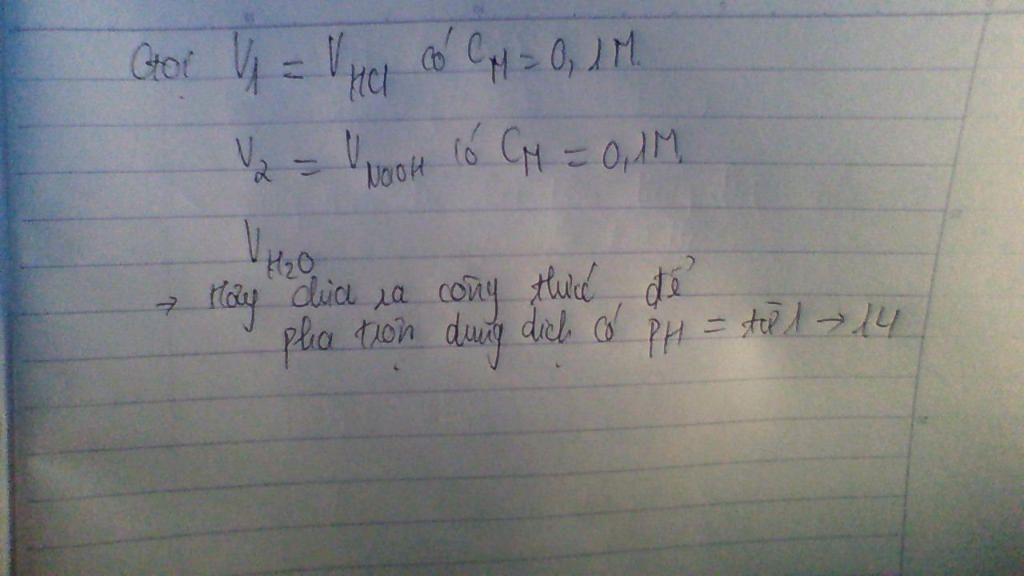 Gọi V1 = VHCl có CM = 0,1M.
V2 = VNaOH có CM = 0,1M.
VH2O
→ Hãy đưa ra công thức để
pha trộn dung dịch có pH = từ 1 → 14